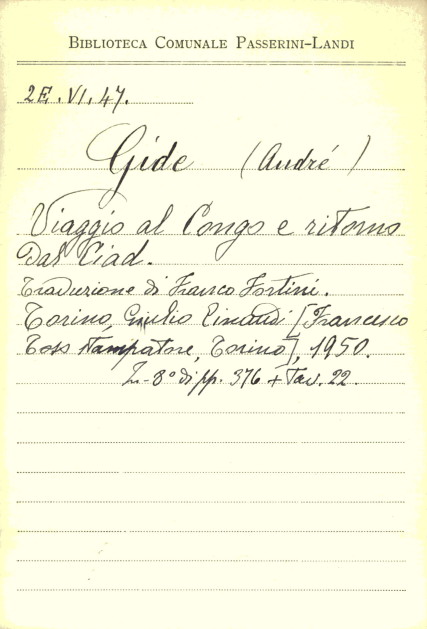 BIBLIOTECA COMUNALE PASSERINI-LANDI
2E.VI.47.
Gide (André)
Viaggio al Congo e ritorno
dal Ciad.
Traduzione di Franco Fortini.
Torino, Giulio Einaudi [Francesco
Toso stampatore, Torino], 1950.
In-8° di pp. 376 + Tav. 22.